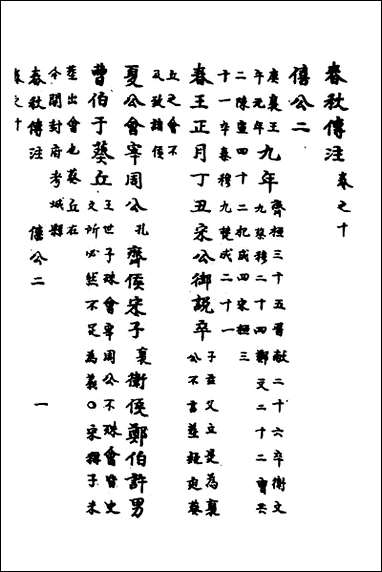 春秋傳注 卷之十
僖公二
庚襄王
午元年
九年
齊桓三十五晉獻二十六卒衛文
九蔡穆二十四鄭文二十二曹共
二陳宣四十二杞成四宋桓三
十一卒秦穆九楚成二十一
春王正月丁丑宋公御說卒
子茲父立是為襄
公不言葬 葵
丘之會不
及致諸侯
夏公會宰周公 孔 齊侯宋子 襄 衛侯鄭伯許男
曹伯于葵丘
王世子殊會宰周公不殊會皆史
文所必然不足為義〇宋稱子未
葬出會也葵丘在
今開封府考城縣
春秋傳注 僖公二 一
卷之十